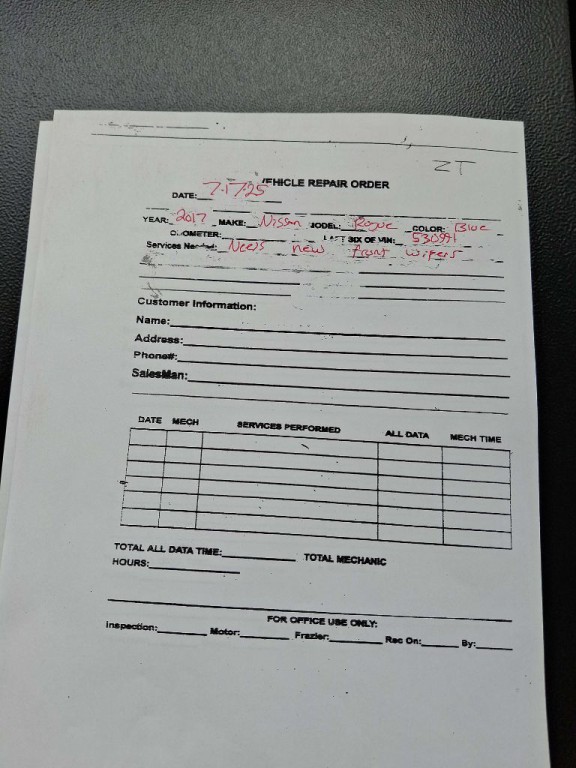 ZT
VEHICLE REPAIR ORDER
DATE: 7-17-25
YEAR: 2017 MAKE: Nissan MODEL: Rogue COLOR: Blue
ODOMETER: LAST SIX OF VIN: 530991
Services Needed: Needs new front wipers
Customer Information:
Name:
Address:
Phone#:
SalesMan:
DATE MECH SERVICES PERFORMED ALL DATA MECH TIME
TOTAL ALL DATA TIME: TOTAL MECHANIC
HOURS:
FOR OFFICE USE ONLY:
Inspection: Motor: Frazier: Rec On: By: